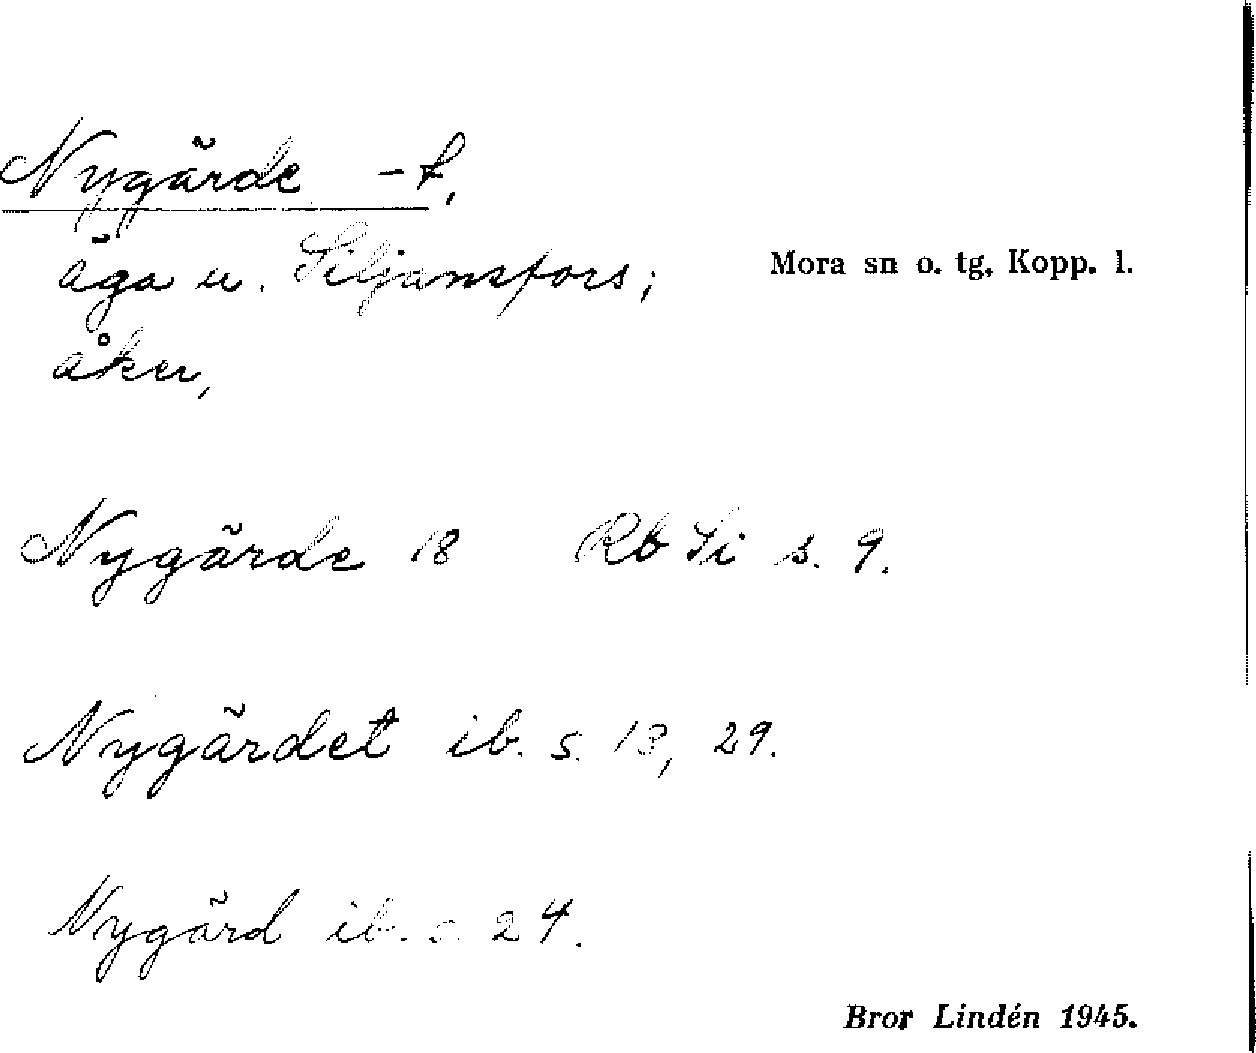 Nygärde -t,
äga u. Siljansfors;
Mora sn o. tg. Kopp. l.
åker,
Nygärde 18 Rb Si s. 9.
Nygärdet ib. s. 13, 29.
Nygärd ib. s. 24.
Bror Lindén 1945.